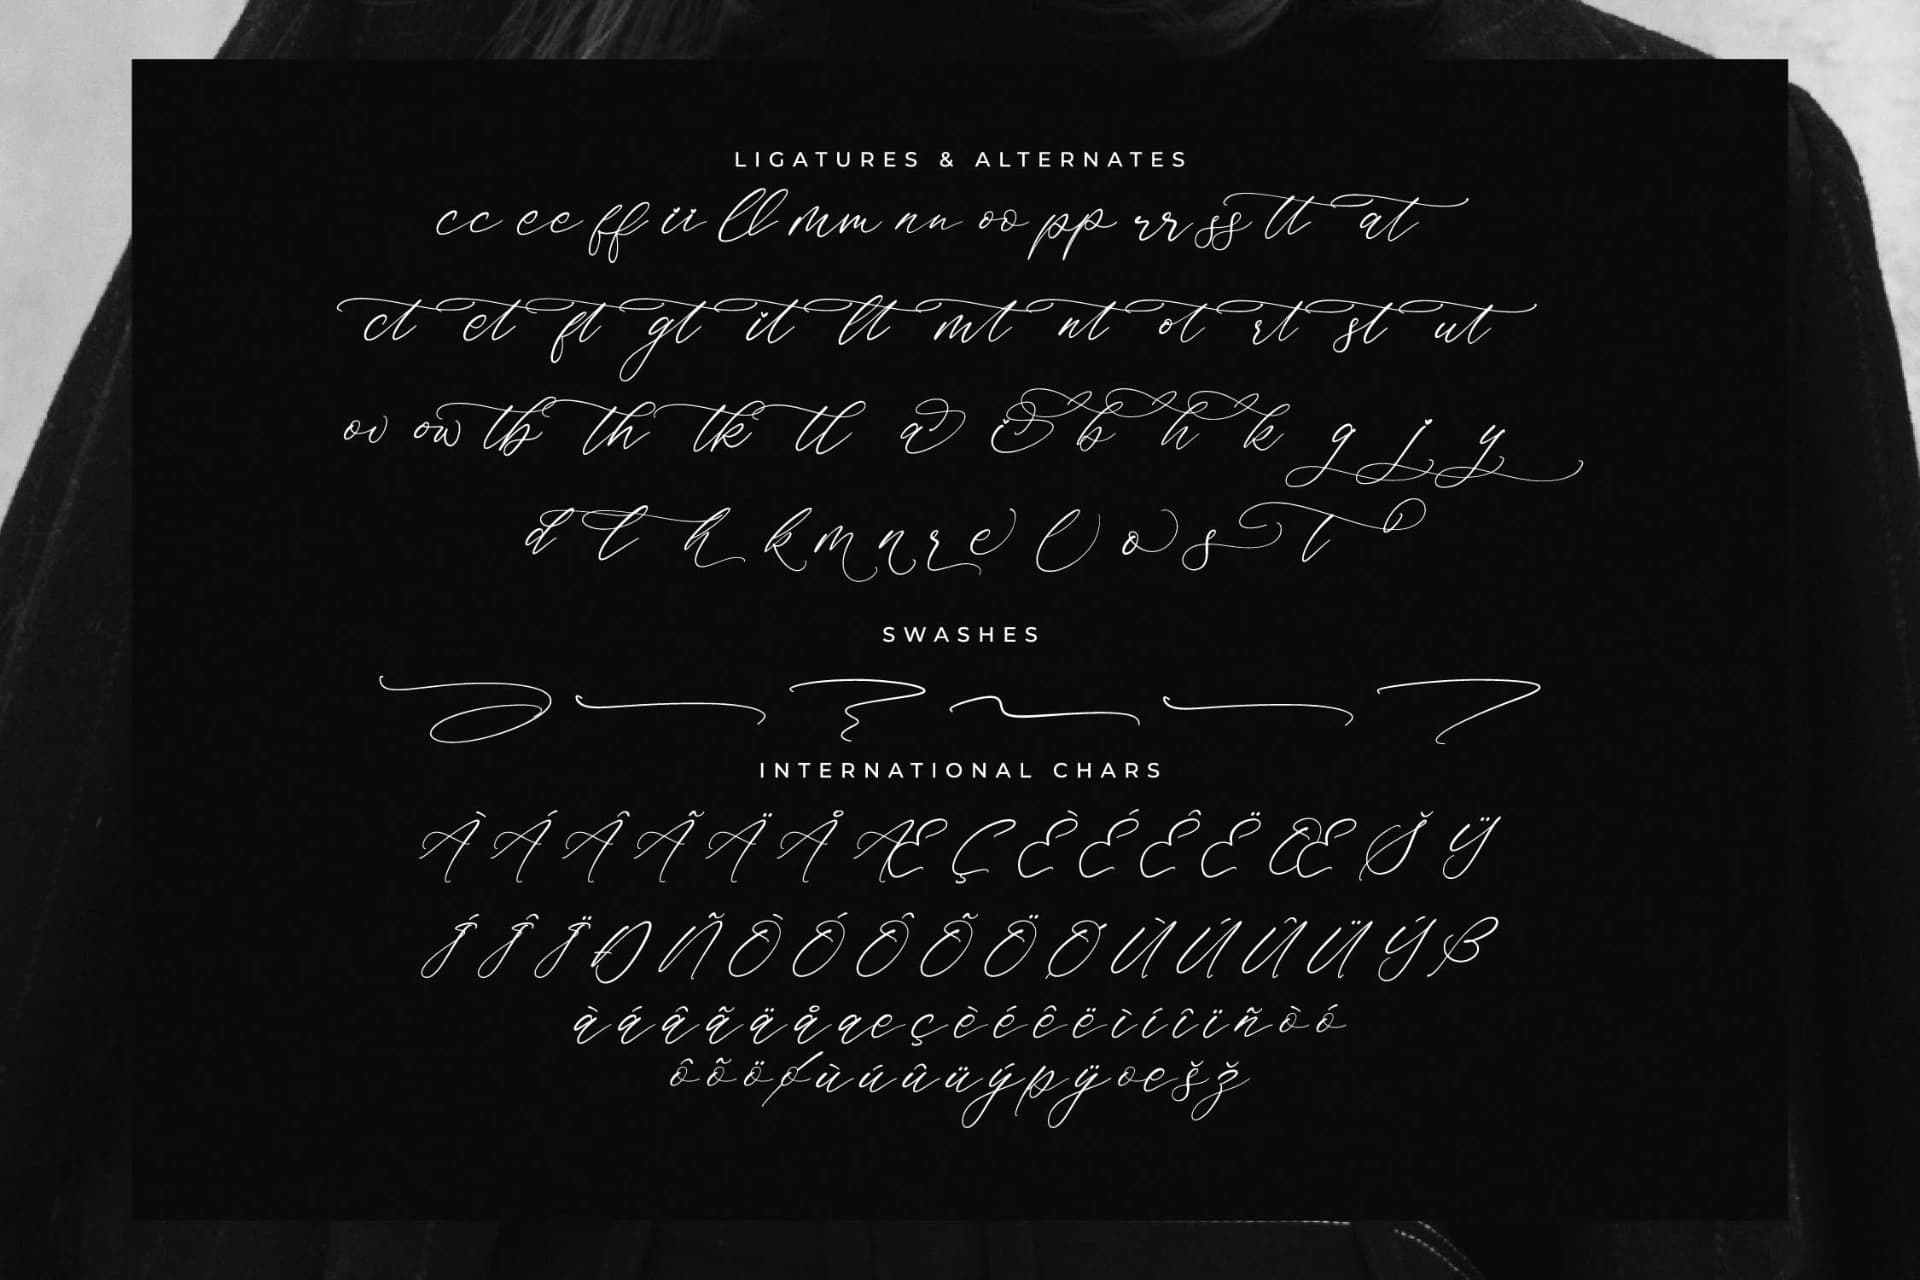 LIGATURES & ALTERNATES
cc ee ff ii ll mm nn oo pp rr ss tt at
ct et ft gt it lt mt nt ot rt st ut
ov ow tb th tk tl a i b h k g j y
d t h k m n r e l o s t
SWASHES
INTERNATIONAL CHARS
À Á Â Ã Ä Å Æ Ç È É Ê Ë Œ Š Ÿ
Í Î Ï Ð Ñ Ò Ó Ô Õ Ö Ø Ù Ú Û Ü Ý ß
à á â ã ä å æ ç è é ê ë ì í î ï ñ ò ó
ô õ ö ø ù ú û ü ý þ ÿ œ š ž